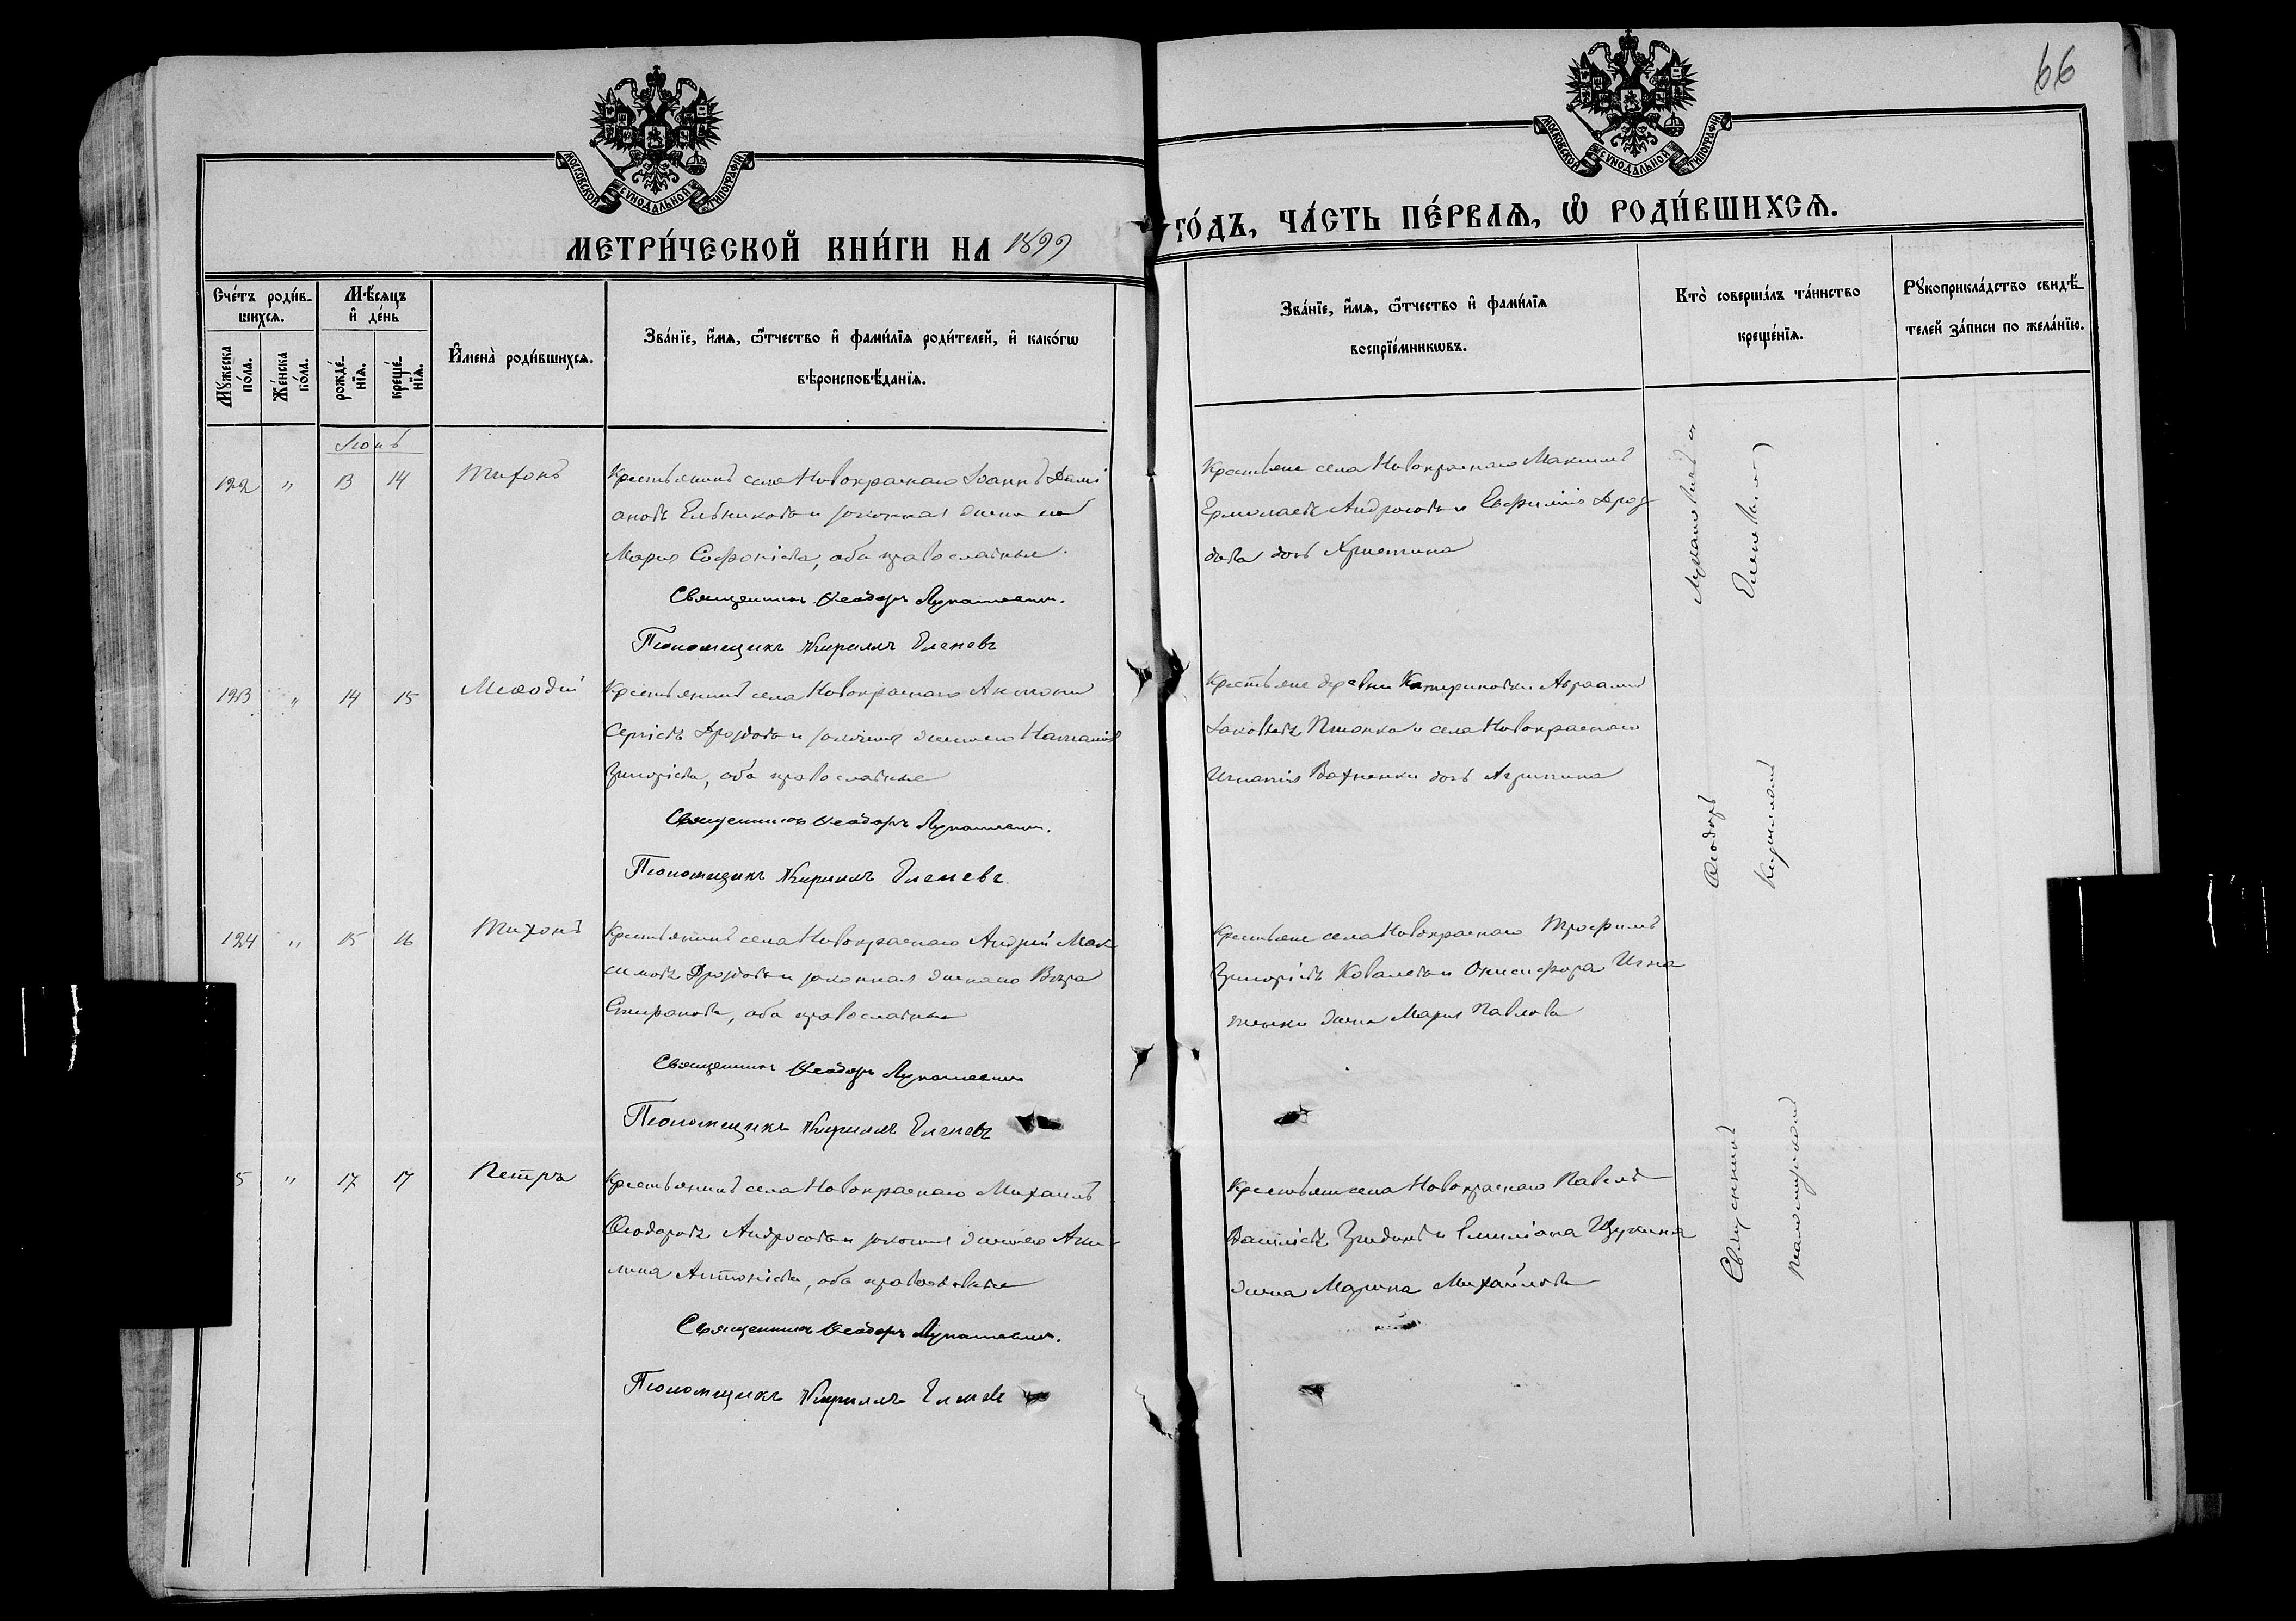 66
МОСКОВСКОЙ СѴНОДАЛЬНОЙ ТИПОГРАФІИ
МОСКОВСКОЙ СѴНОДАЛЬНОЙ ТИПОГРАФІИ
МЕТРИ́ЧЕСКОЙ КНИ́ГИ НА 1899
ГО́ДЪ, ЧА́СТЬ ПЕ́РВАѦ, Ѽ РОДИ́ВШИХСѦ.
Сче́тъ роди́в-
шихсѧ.
Мꙋжеска
по́ла.
Же́нска
по́ла.
Мѣ́сѧцъ
и҆ де́нь
рожде́-
нїѧ.
креще́-
нїѧ.
И҆мена̀ роди́вшихсѧ.
Зва́нїе, и҆́мѧ, ѻ҆́тчество и҆ фами́лїѧ роди́телей, и҆ како́гѡ
вѣроисповѣ́данїѧ.
Зва́нїе, и҆́мѧ, ѻ҆́тчество и҆ фами́лїѧ
воспрїе́мникѡвъ.
Кто̀ соверша́лъ та́инство
креще́нїѧ.
Рꙋкоприкла́дство свидѣ́-
телей за́писи по жела́нїю.
Іюнь
122 " 13 14 Тихонъ
Крестьянинъ села Новокраснаго Іоаннъ Дамі
ановъ Ельниковъ и законная жена его
Марія Софоніева, оба православные.
Священникъ Ѳеодоръ Лукашевич.
Псаломщикъ Кириллъ Еленевъ
Крестьяне села Новокраснаго Максимъ
Ермолаевъ Андросовъ и Евфимія Дроз
дова дочь Христина
123 " 14 15 Меѳодій
Крестьянинъ села Новокраснаго Антоній
Сергіевъ Дроздовъ и законная жена его Наталія
Григоріева, оба православные
Священникъ Ѳеодоръ Лукашевич.
Псаломщикъ Кириллъ Еленевъ
Крестьяне деревни Катериновки Авраамъ
Іаковлевъ и села Новокраснаго
Игнатія дочь Агриппина
124 " 15 16 Тихонъ
Крестьянинъ села Новокраснаго Андрей Мак
симовъ Дроздовъ и законная жена его Вѣра
Стефанова, оба православные
Священникъ Ѳеодоръ Лукашевич
Псаломщикъ Кириллъ Еленевъ
Крестьяне села Новокраснаго Трофимъ
Григоріевъ Ковалевъ и Онисифора Игна
тенки жена Марія Павлова
5 " 17 17 Петръ
Крестьянинъ села Новокраснаго Михаилъ
Ѳеодоровъ Андросовъ и законная жена его Аки-
лина Антоніева, оба православные
Священникъ Ѳеодоръ Лукашевич.
Псаломщикъ Кириллъ Еленев
Крестьяне села Новокраснаго Павелъ
Даниловъ и Емиліана Щукина
жена Марина Михайлова
Священникъ Ѳеодоръ Лукашевичъ съ
псаломщикомъ Кирилломъ Еленевымъ